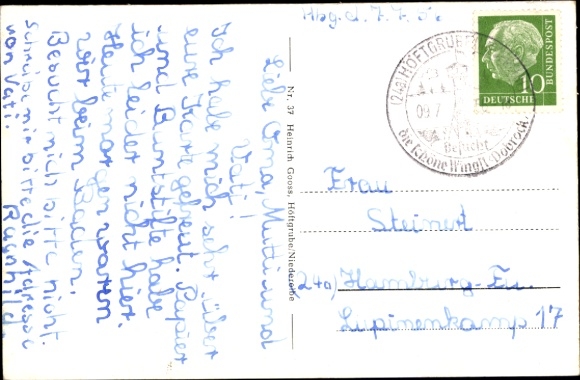 Hbg. d. 7. 7. 5
Liebe Oma, Mutti und
Vati!
Ich habe mich sehr über
eure Karte gefreut. Papier
und Buntstifte habe
ich leider nicht hier.
Heute morgen waren
wir beim Baden.
Besucht mich bitte nicht.
Schreibe mir bitte die Adresse
von Vati.
Nr. 37 Heinrich Gooss, Höftgrube/Niederelbe
(24a) HÖFTGRUBE
09.7
Besucht
die schöne Wingst
10
DEUTSCHE
BUNDESPOST
Frau
Steinert
(24a) Hamburg-Fu.
Lupinenkamp 17